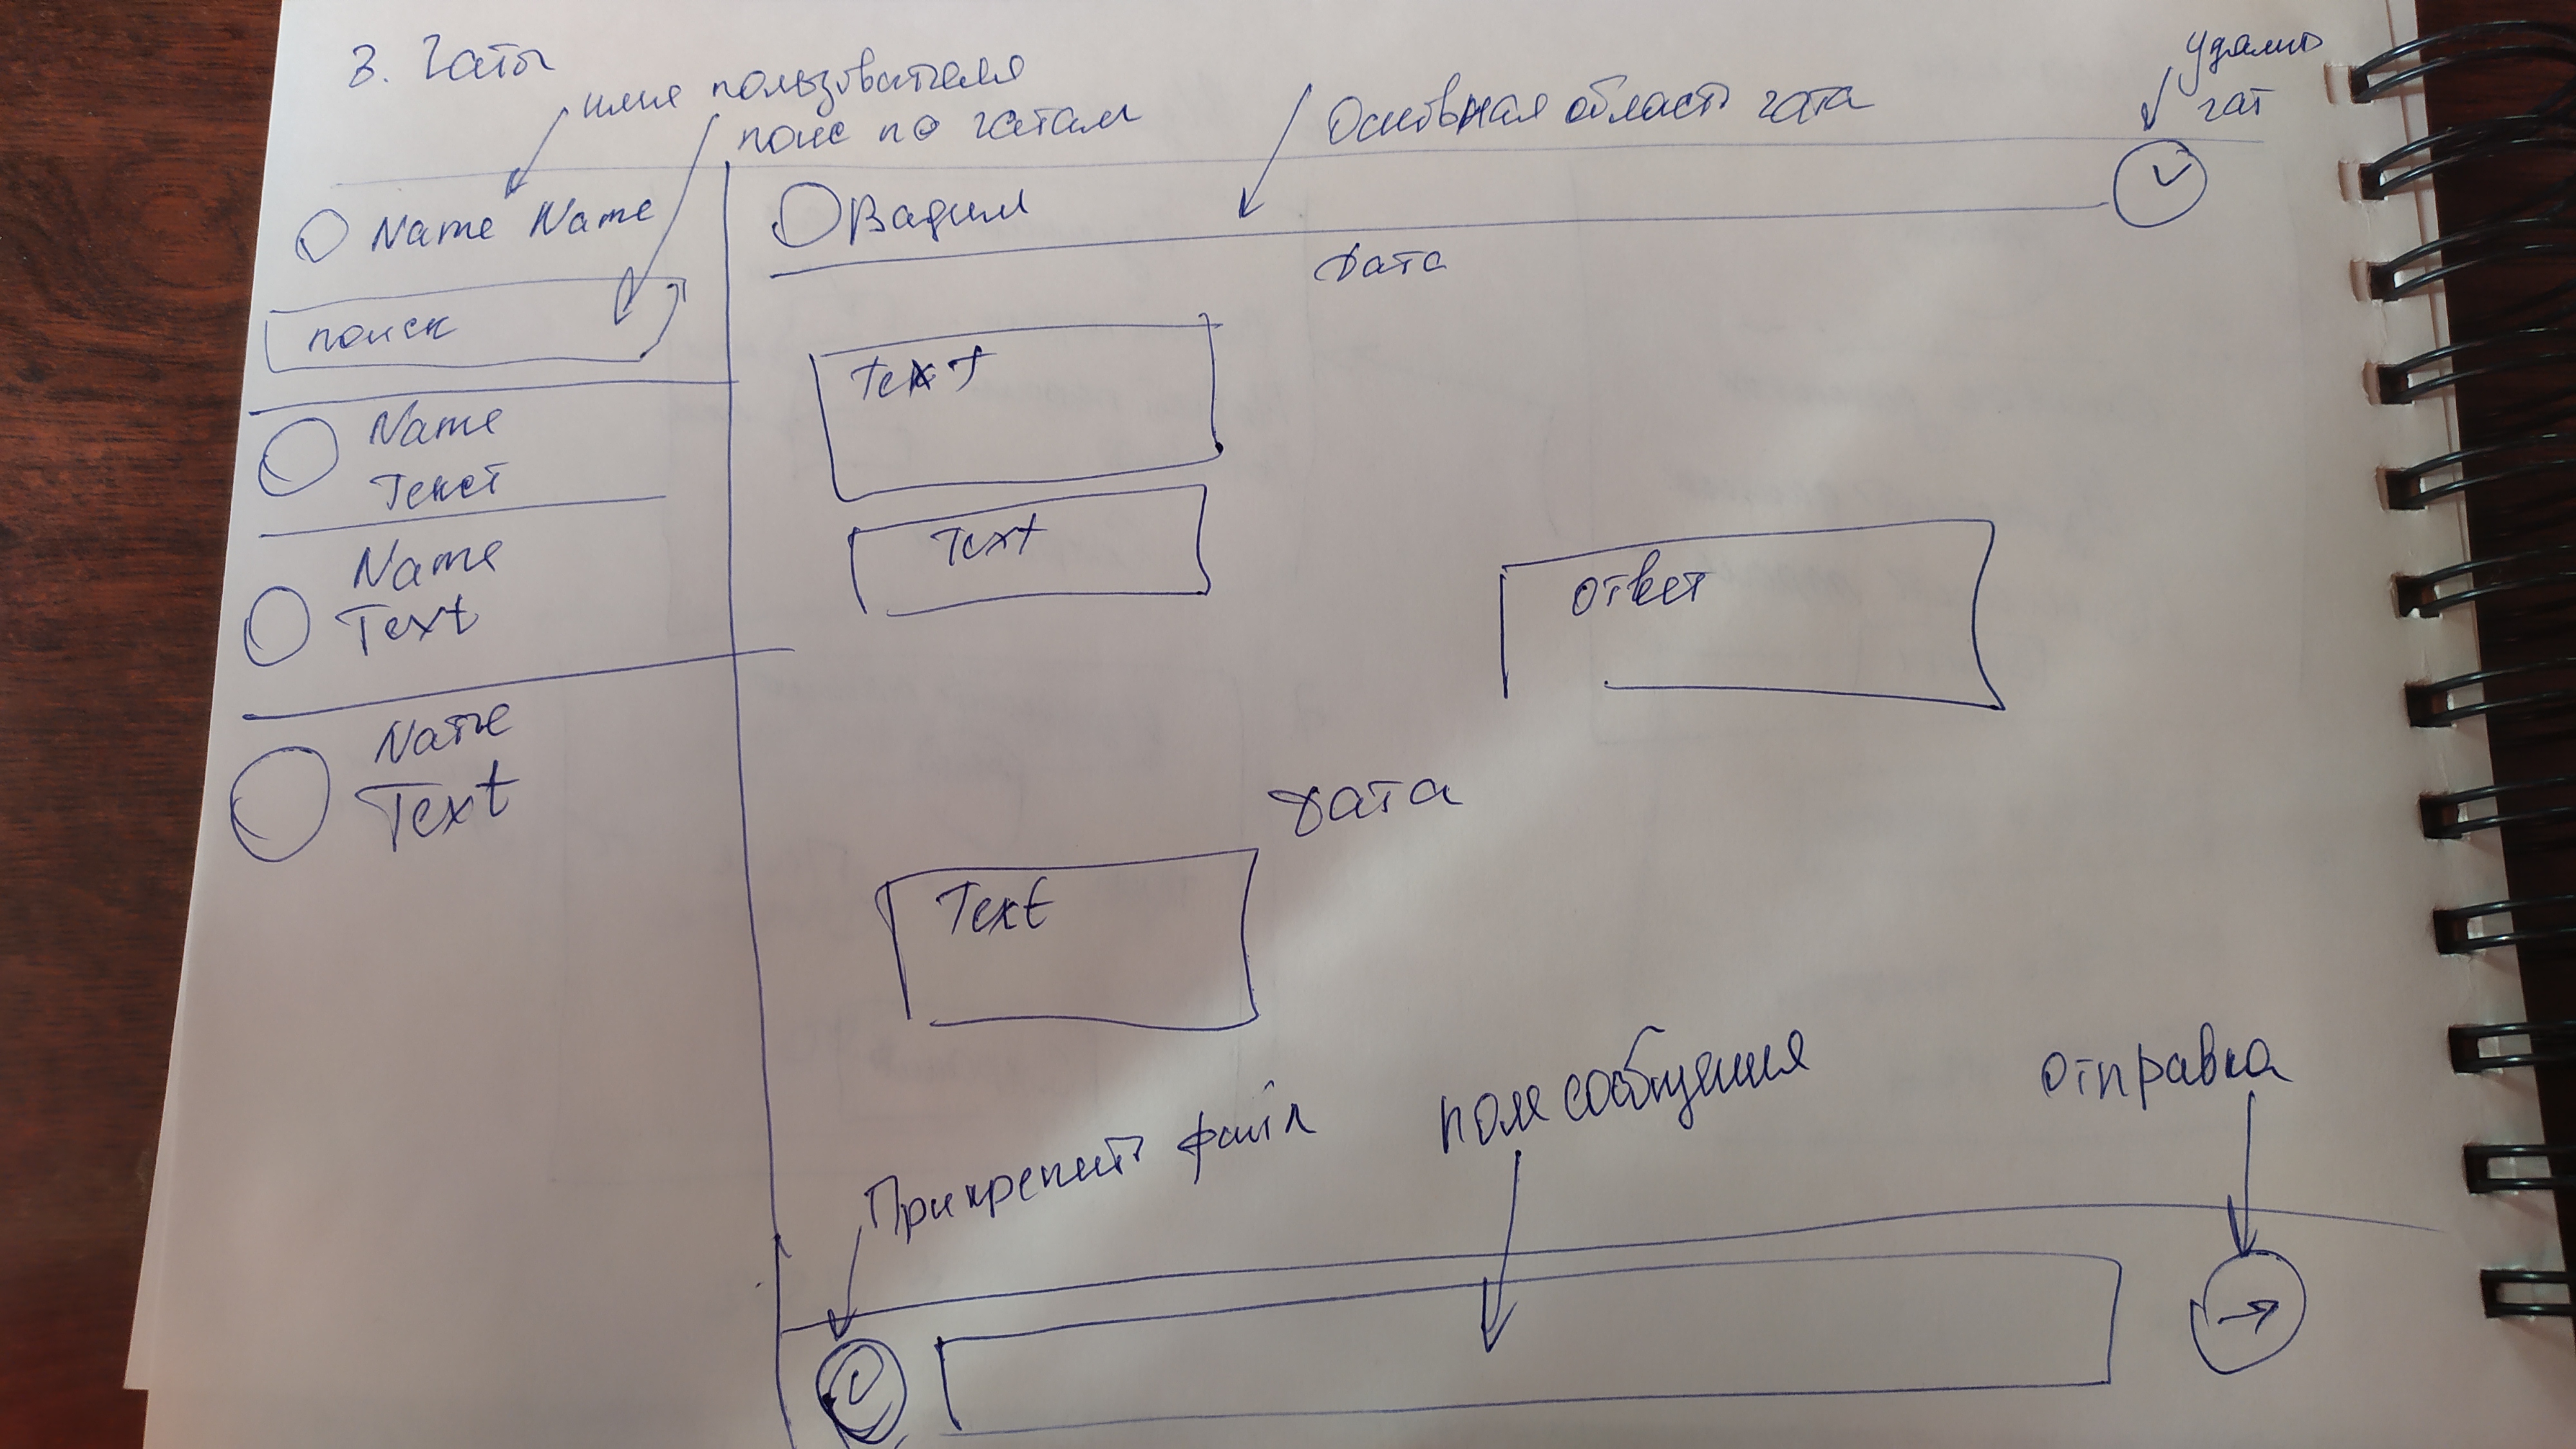 3. Чаты
имя пользователя
поис по чатам
Основная область чата
Удалит
чат
Name Name
поиск
Name
Текст
Name
Text
Name
Text
Вадим
Дата
Text
Text
ответ
Дата
Text
Прикрепит файл
поле сообщения
отправка